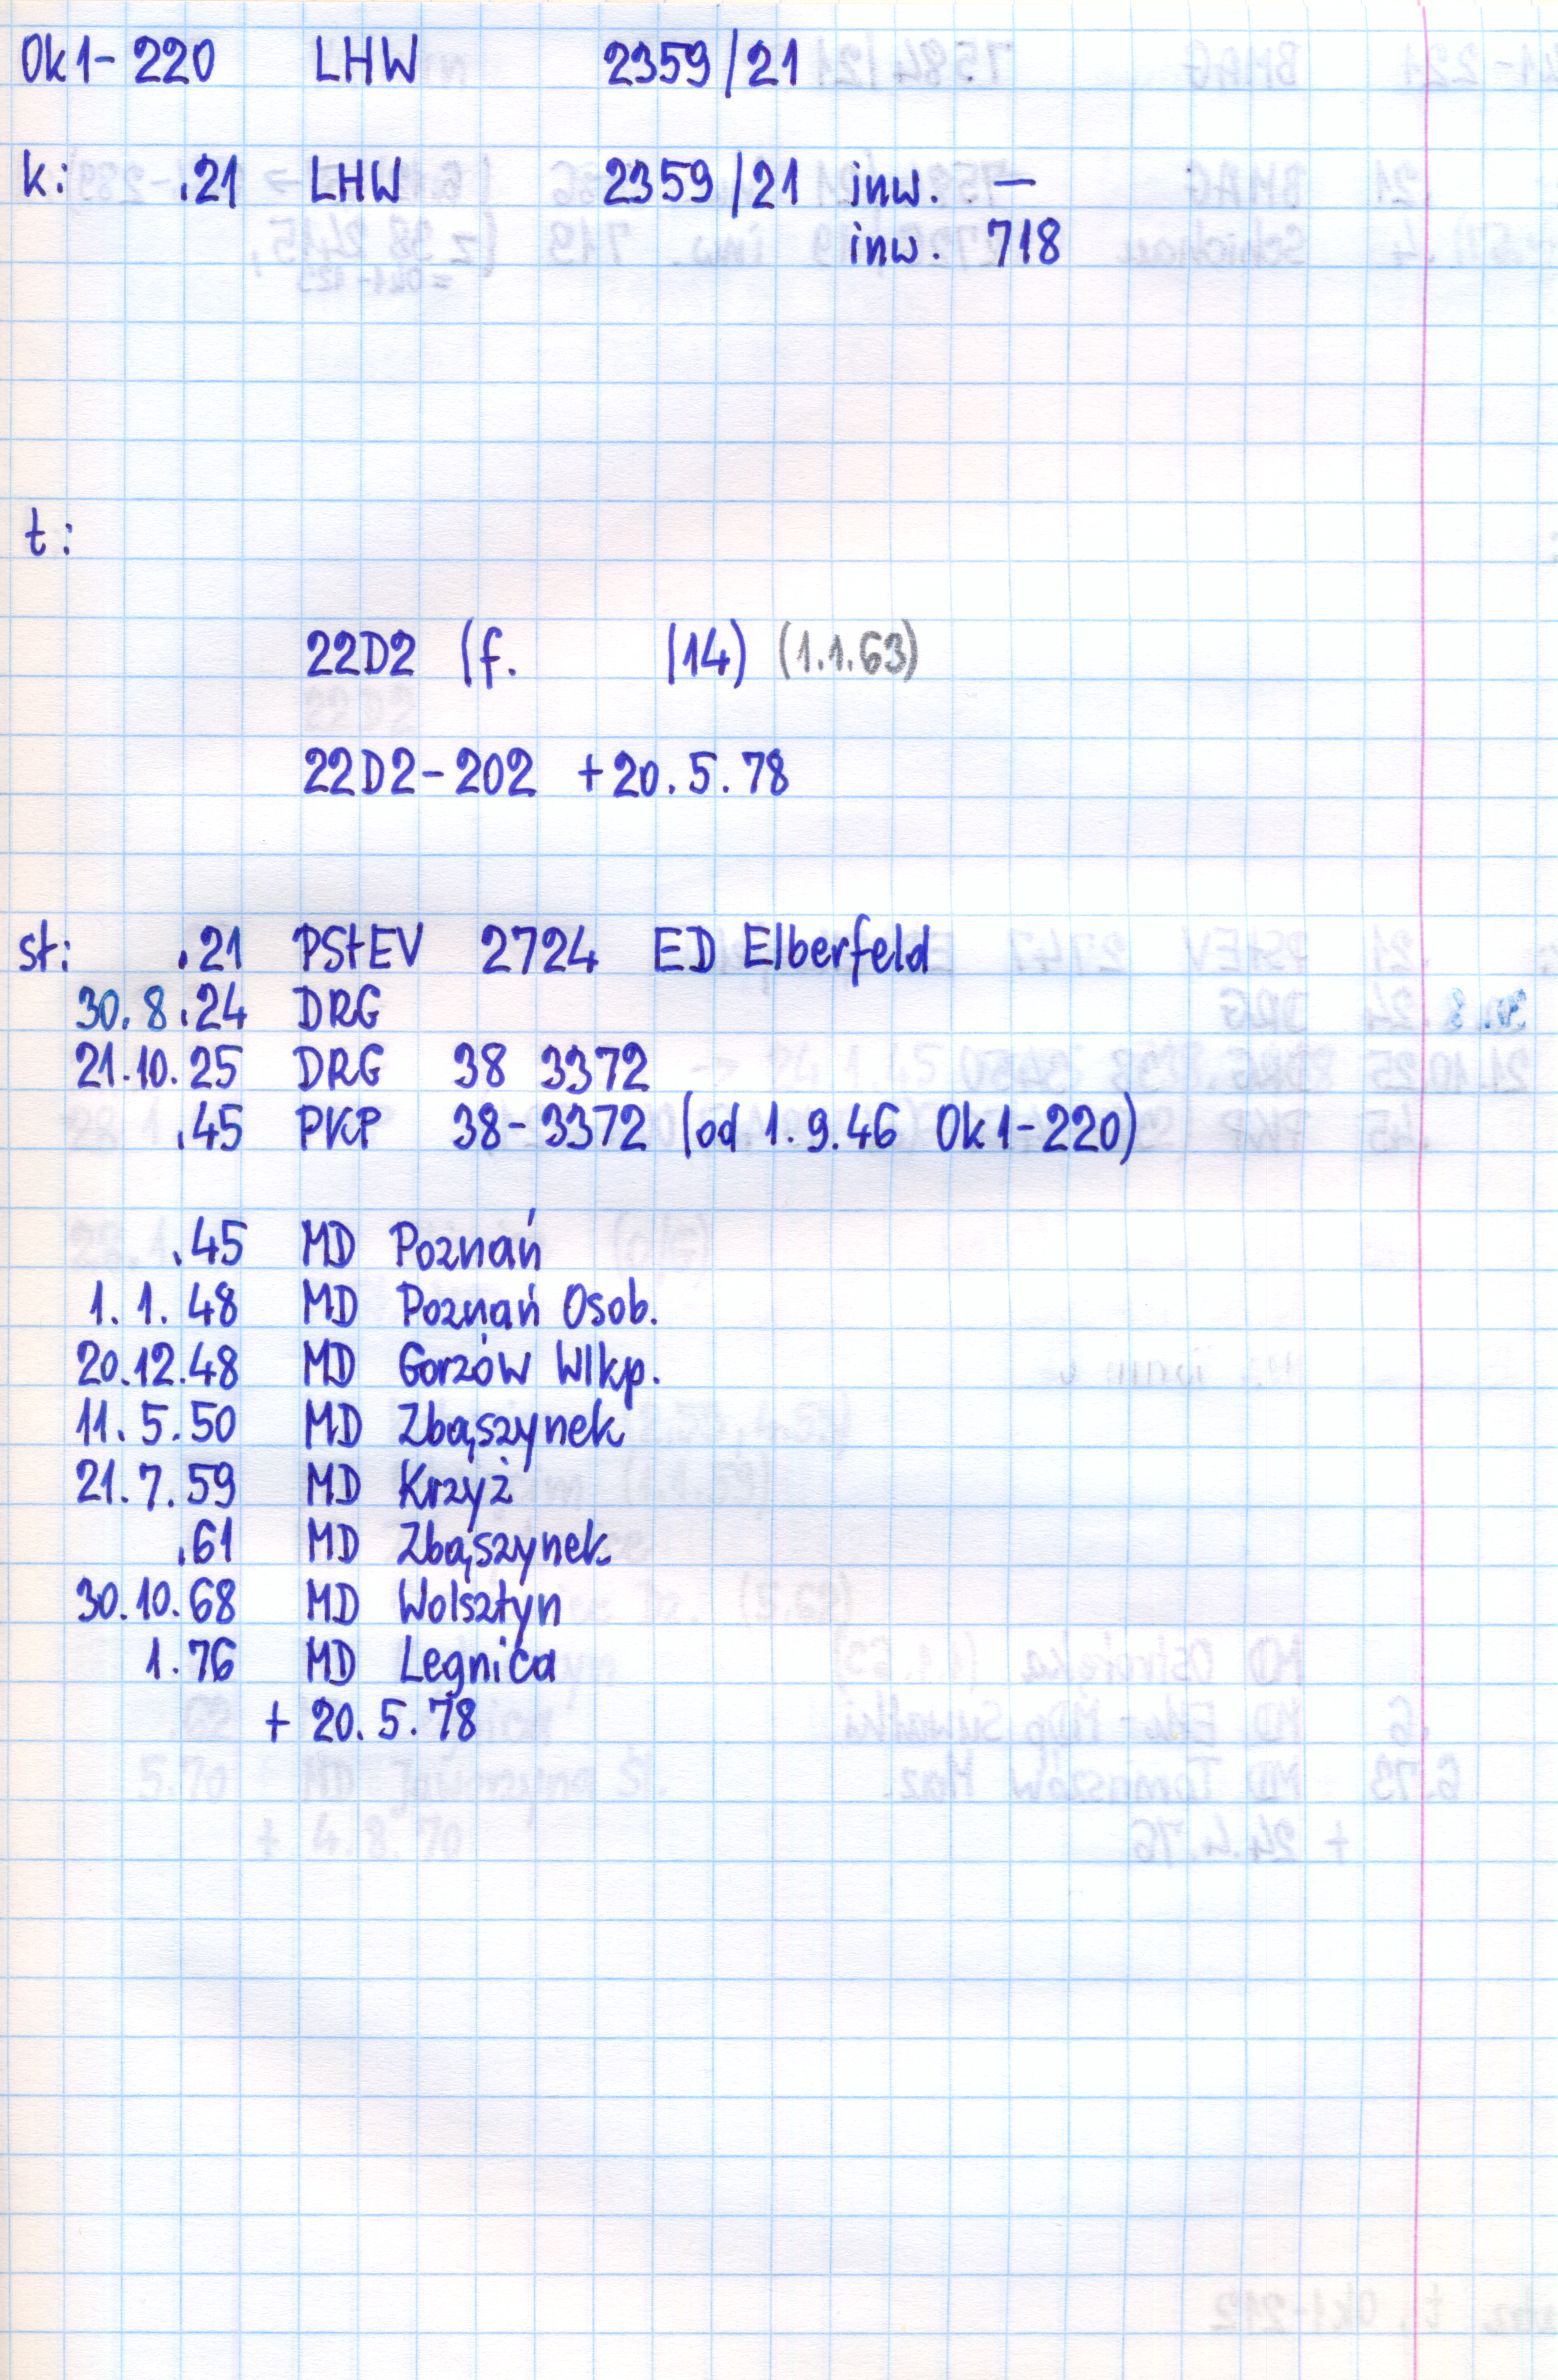 Ok1-220 LHW 2359/21
k: .21 LHW 2359/21 inw. —
inw. 718
t:
22D2 (f. /14) (1.1.63)
22D2-202 +20.5.78
st: .21 PStEV 2724 ED Elberfeld
30.8.24 DRG
21.10.25 DRG 38 3372
.45 PKP 38-3372 (od 1.9.46 Ok1-220)
.45 MD Poznań
1.1.48 MD Poznań Osob.
20.12.48 MD Gorzów Wlkp.
11.5.50 MD Zbąszynek
21.7.59 MD Krzyż
.61 MD Zbąszynek
30.10.68 MD Wolsztyn
1.76 MD Legnica
+ 20.5.78